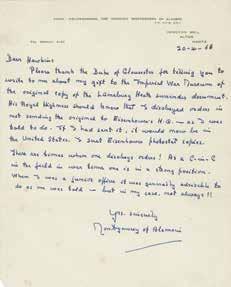 FROM: FIELD-MARSHAL THE VISCOUNT MONTGOMERY OF ALAMEIN
ISINGTON MILL,
ALTON,
HANTS.
20-10-68
Dear Hawkins
Please thank the Duke of Gloucester for telling you to
write to me about my gift to the Imperial War Museum of
the original copy of the Lüneburg Heath surrender document.
His Royal Highness should know that I disobeyed orders in
not sending the original to Eisenhower's H.Q. — as I was
told to do. If I had sent it, it would now be in
the United States. I sent Eisenhower photostat copies.
There are times when one disobeys orders! As a C-in-C
in the field in war time one is in a strong position.
When I was a junior officer it was generally advisable to
do as one was told — but in my case, not always!!
Yrs. sincerely
Montgomery of Alamein